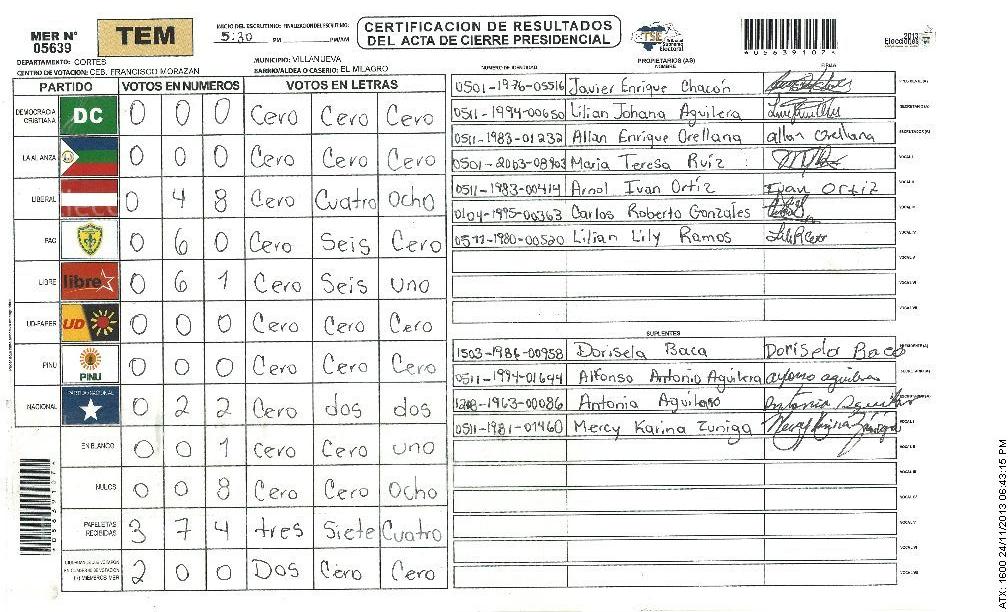 MER N° 05639
TEM
INICIO DEL ESCRUTINIO: FINALIZACION DEL ESCRUTINIO:
5:30 PM PM/AM
CERTIFICACION DE RESULTADOS
DEL ACTA DE CIERRE PRESIDENCIAL
TSE
Tribunal Supremo Electoral
0563910 7 4
2013
Elecciones
DEPARTAMENTO: CORTES
MUNICIPIO: VILLANUEVA
CENTRO DE VOTACION: CEB. FRANCISCO MORAZAN
BARRIO/ALDEA O CASERIO: EL MILAGRO
PARTIDO VOTOS EN NUMEROS VOTOS EN LETRAS
DEMOCRACIA CRISTIANA DC 0 0 0 Cero Cero Cero
LA ALIANZA 0 0 0 Cero Cero Cero
LIBERAL 0 4 8 Cero Cuatro Ocho
PAC 0 6 0 Cero Seis Cero
LIBRE libre 0 6 1 Cero Seis uno
UD-FAPER UD 0 0 0 Cero Cero Cero
PINU PINU 0 0 0 Cero Cero Cero
NACIONAL PARTIDO NACIONAL 0 2 2 Cero dos dos
EN BLANCO 0 0 1 cero Cero uno
NULOS 0 0 8 Cero Cero Ocho
PAPELETAS RECIBIDAS 3 7 4 tres Siete Cuatro
2 0 0 Dos Cero Cero
PROPIETARIOS (AS)
NUMERO DE IDENTIDAD NOMBRE FIRMA
0501-1976-05516 Javier Enrique Chacón PRESIDENTE(A)
0511-1994-00650 Lilian Johana Aguilera SECRETARIO(A)
0511-1983-01232 Allan Enrique Orellana allan orellana ESCRUTADOR(A)
0501-2003-08903 Maria Teresa Ruíz VOCAL I
0511-1983-00414 Arnol Ivan Ortíz Ivan Ortiz VOCAL II
0104-1995-00363 Carlos Roberto Gonzales VOCAL III
0511-1980-00520 Lilian Lily Ramos VOCAL IV
VOCAL V
VOCAL VI
VOCAL VII
SUPLENTES
1503-1986-00958 Dorisela Baca Dorisela Baca PRESIDENTE(A)
0511-1994-01644 Alfonso Antonio Aguilera SECRETARIO(A)
-1963-00086 Antonia Aguilar Antonia Aguilar ESCRUTADOR(A)
0511-1981-01460 Mercy Karina Zuniga VOCAL I
VOCAL II
VOCAL III
VOCAL IV
VOCAL V
VOCAL VI
VOCAL VII
ATX: 1600.24/11/2013 06:43:15 PM